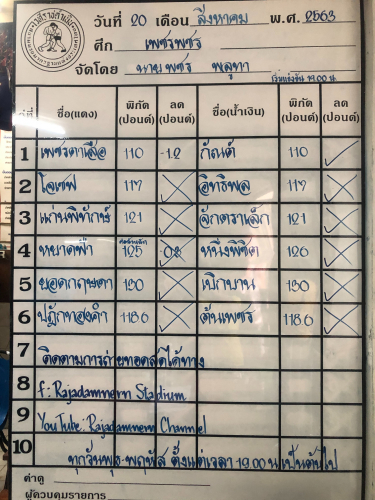 วันที่ 20 เดือน สิงหาคม พ.ศ. 2563
ศึก เพชรพชร
จัดโดย นาย พชร
เริ่มแข่งขัน 19.00 น.
คู่ที่ ชื่อ(แดง) พิกัด (ปอนด์) ลด (ปอนด์) ชื่อ(น้ำเงิน) พิกัด (ปอนด์) ลด (ปอนด์)
1 เพชรตาเสือ 110 -1.2 กัณต์ 110
2 โอเซฟ 117 อิทธิพล 117
3 แก่นพิทักษ์ 121 จักดราเล็ก 121
4 หยาดฟ้า 125 -0.2 หนึ่งพิชิต 126
5 ยอดกฤษดา 130 เบิกบาน 130
6 ปฏักทองคำ 118.6 ต้นเพชร 118.6
7 ติดตามการถ่ายทอดสดได้ทาง
8 f: Rajadamnern Stadium
9 YouTube: Rajadamnern Channel
10 ทุกวันพุธ-พฤหัส ตั้งแต่เวลา 19.00 น. เป็นต้นไป
ค่าดู
ผู้ควบคุมรายการ